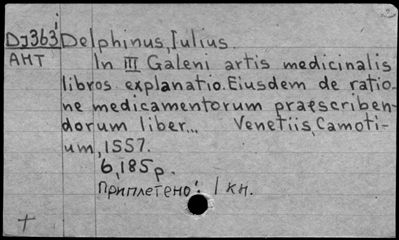 DJ363 Delphinus, Iulius.
AMT In III Galeni artis medicinalis
libros explanatio. Eiusdem de ratio-
ne medicamentorum praescriben-
dorum liber... Venetiis, Camoti-
um, 1557.
6, 185 p.
Приплетено: 1 кн.
+